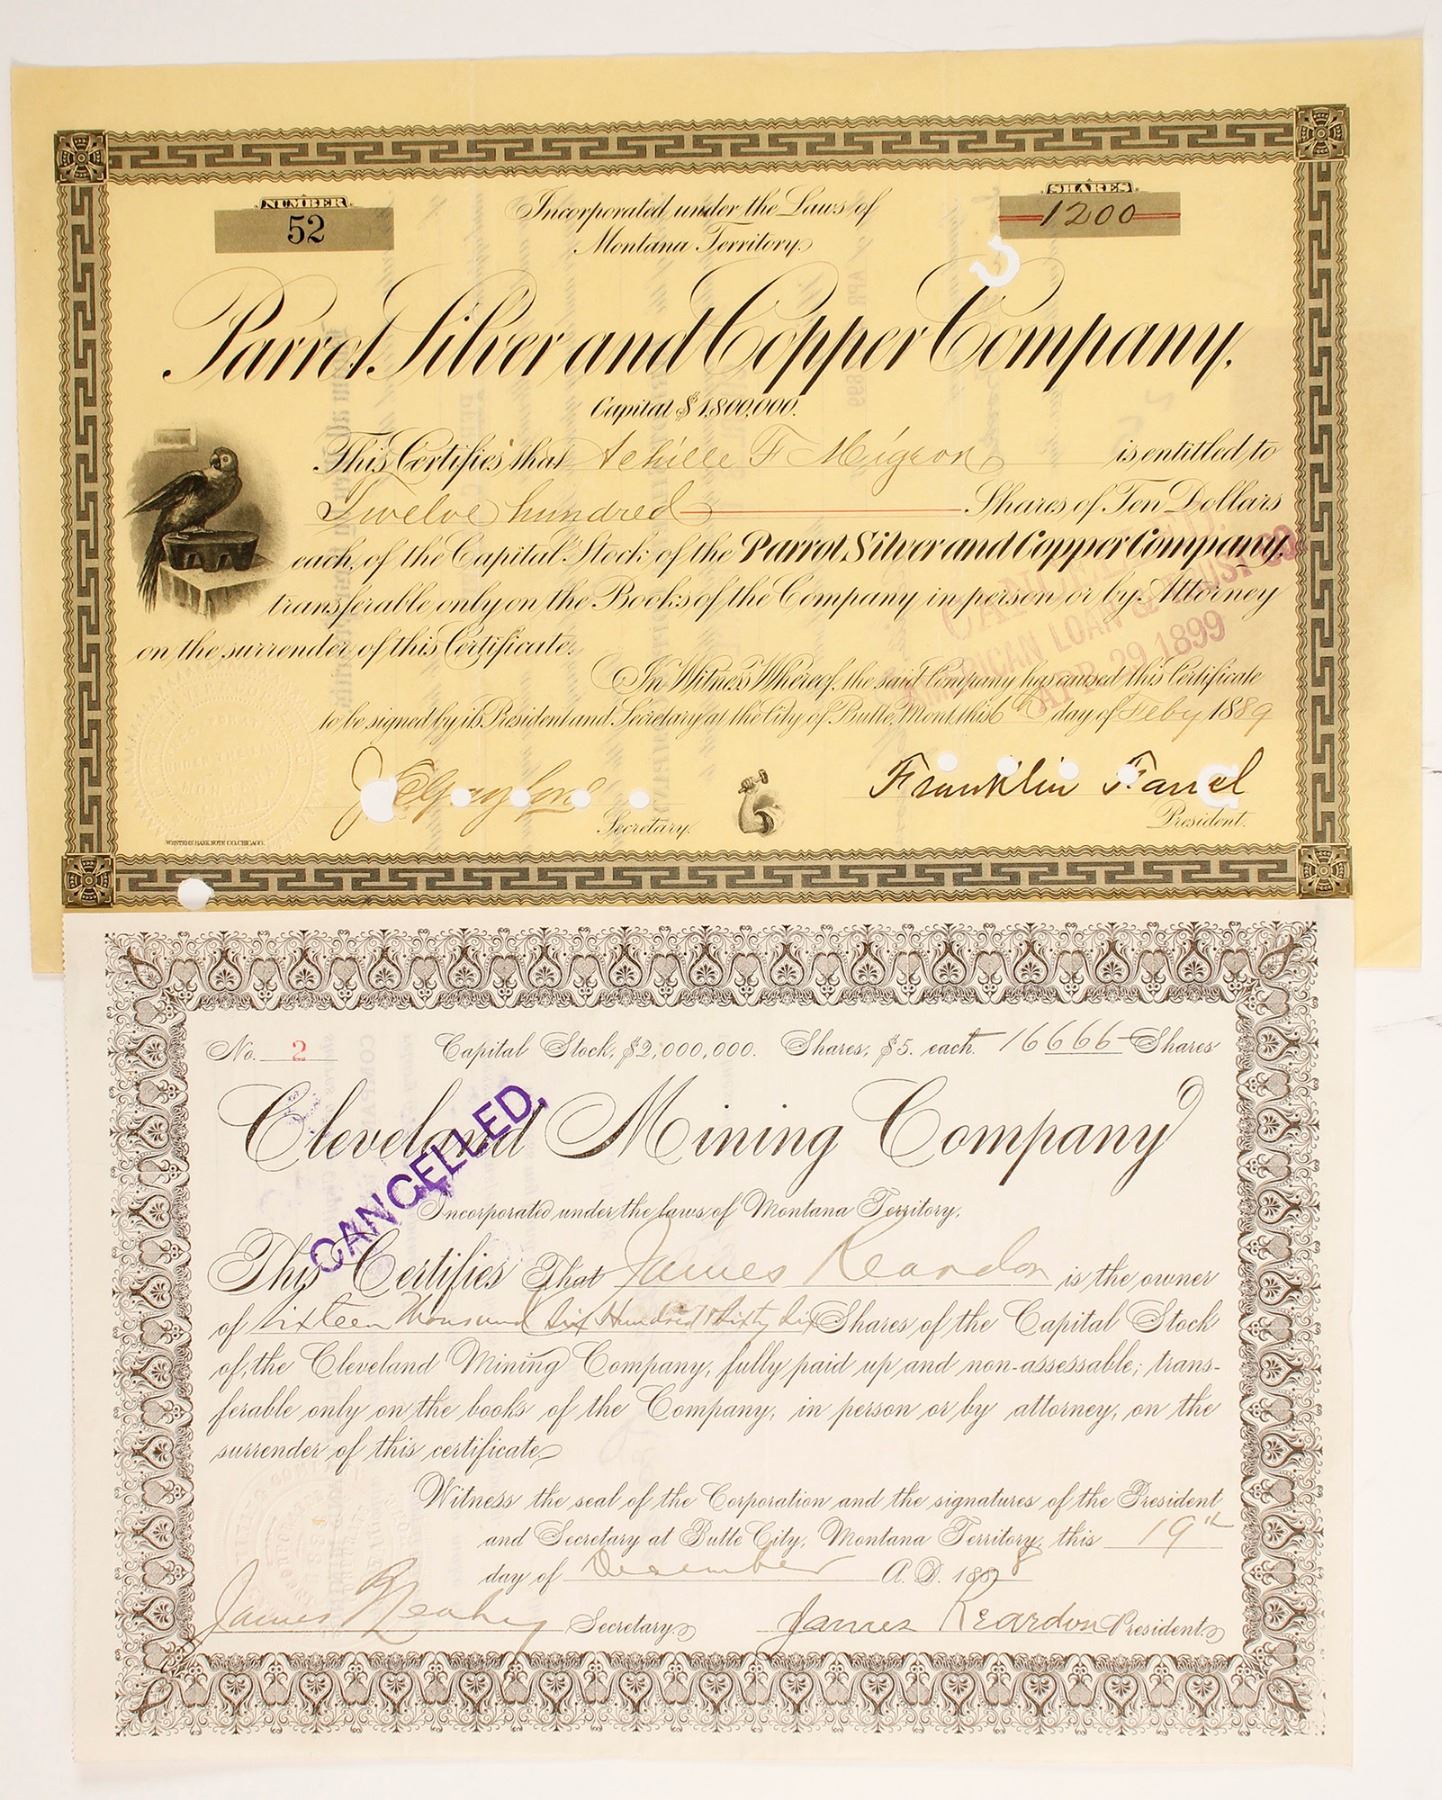 NUMBER
52
SHARES
1200
Incorporated under the Laws of
Montana Territory.
Parrot Silver and Copper Company.
Capital $1,800,000.
This Certifies that Achille F Migeon is entitled to
Twelve hundred Shares of Ten Dollars
each, of the Capital Stock of the Parrot Silver and Copper Company,
transferable only on the Books of the Company in person or by Attorney
on the surrender of this Certificate.
In Witness Whereof, the said Company has caused this Certificate
to be signed by its President and Secretary at the City of Butte, Mont. this 6th day of Feby 1889
CANCELLED.
AMERICAN LOAN & TRUST CO.
APR 29 1899
Franklin Farrel
Secretary.
President.
WESTERN BANK NOTE CO. CHICAGO.
No. 2 Capital Stock, $2,000,000. Shares, $5. each. 16666 Shares
Cleveland Mining Company
CANCELLED.
Incorporated under the laws of Montana Territory.
This Certifies That James Reardon is the owner
of Sixteen Thousand Six Hundred Sixty Six Shares of the Capital Stock
of the Cleveland Mining Company, fully paid up and non-assessable; trans-
ferable only on the books of the Company, in person or by attorney, on the
surrender of this certificate
Witness the seal of the Corporation and the signatures of the President
and Secretary at Butte City, Montana Territory, this 19th
day of December A.D. 1888
James Secretary James Reardon President